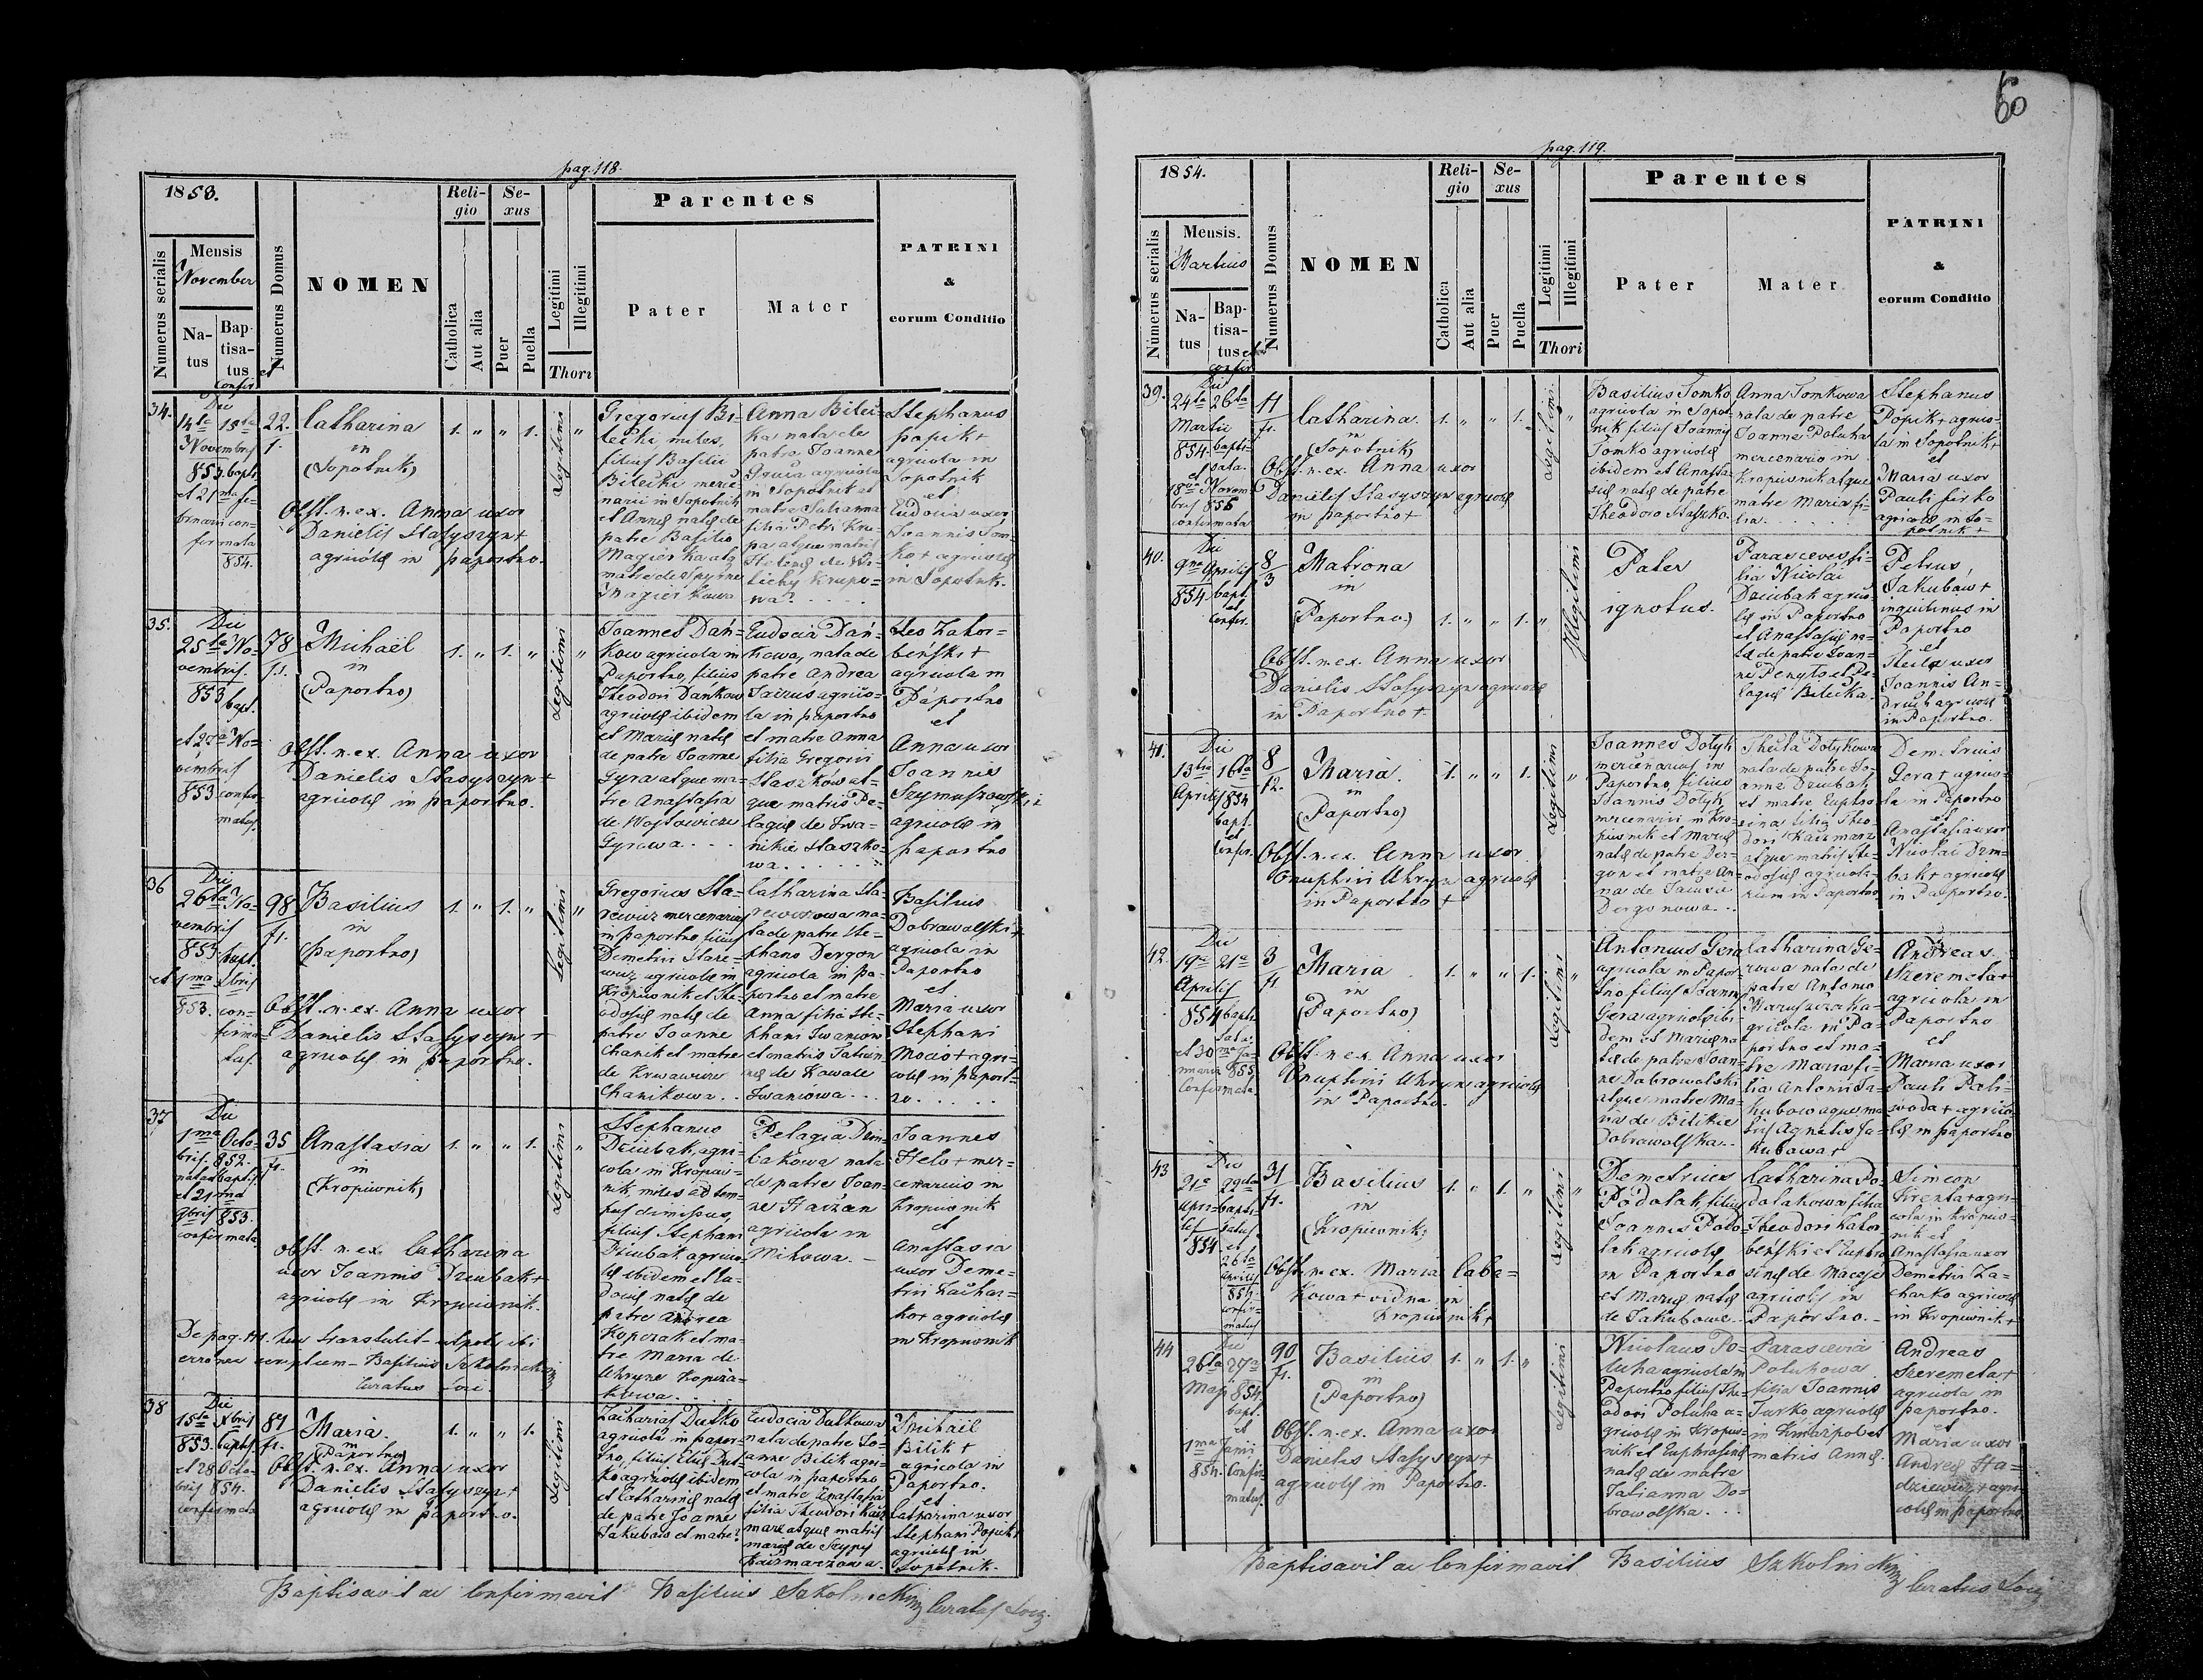 pag. 118.
1853.
Numerus serialis
Mensis
November
Natus
Baptisatus
et Confir
Numerus Domus
NOMEN
Religio
Catholica
Aut alia
Sexus
Puer
Puella
Legitimi
Illegitimi
Thori
Parentes
Pater
Mater
PATRINI
&
eorum Conditio
34.
Die
14ta 15ta
Novembris
853. bapt.
et 21ma
con-
firmata
854.
22.
1.
Catharina
in
(Sopotnik)
Obst. n. ex. Anna uxor
Danielis Stasyszyn +
agricolæ in Paportno.
1. " " 1.
Legitimi
"
Gregorius Bi-
lecki miles,
filius Basilii
Bilecki merce-
narii in Sopotnik
et Annæ natæ de
patre Basilio
Anna Bilec-
ka nata de
patre Joanne
agricola
in Sopotnik et
matre Julianna
filia Petri
Stephanus
Popik +
agricola in
Sopotnik
et
Eudocia uxor
Joannis Tom-
ko + agricolæ
in Sopotnik.
35.
Die
25ta No-
vembris
853 bapt.
et 27a No-
vembris
853 confir-
matus.
78
fr.
Michaël
in
(Paportno)
Obst. n. ex. Anna uxor
Danielis Stasyszyn +
agricolæ in Paportno.
1. " 1. "
Legitimi
"
Joannes Dań-
kow agricola in
Paportno, filius
Theodori Dańkow
agricolæ ibidem
et Mariæ natæ
de patre Joanne
Gyra atque ma-
tre Anastasia
de Wojtowicze
Gyrowa . . .
Eudocia Dań-
kowa, nata de
patre Andrea
agrico-
la in Paportno
et matre Anna
filia Gregorii
Staszków at-
que matris Pe-
lagiæ de Iwa-
nikie Staszko-
wa . . . . .
Leo Zator-
beński +
agricola in
Paportno
et
Anna uxor
Joannis
Szymuszowski
agricolæ in
Paportno
36
Die
26ta No-
vembris
853. bapt.
et 1ma Xbris
853. con-
firma-
tus.
98
fr.
Basilius
in
(Paportno)
Obst. n. ex. Anna uxor
Danielis Stasyszyn +
agricolæ in Paportno.
1. " 1. "
Legitimi
"
Gregorius Sta-
rewicz mercenarius
in Paportno, filius
Demetrii Stare-
wicz agricolæ in
Kropiwnik et The-
odosiæ natæ de
patre Joanne
Chanik et matre
de Krwawicze
Chanikowa . .
Catharina Sta-
rewiczowa na-
ta de patre Ste-
phano Dergon
agricola in Pa-
portno et matre
Anna filia Ste-
phani Iwaniow
et matris Tatian-
næ de Kowale
Iwaniowa . . .
Basilius
Dobrowolski +
agricola in
Paportno
et
Maria uxor
Stephani
Moco + agri-
colæ in Paport-
no. . . . .
37
Die
1ma Octo-
bris. 852.
nata et bapt.
et 21ma
9bris 853.
confirmata
35
fr.
Anastasia
in
(Kropiwnik)
obst. n. ex. Catharina
uxor Joannis Dziubak +
agricolæ in Kropiwnik.
1. " " 1.
Legitimi
"
Stephanus
Dziubak, agri-
cola in Kropiw-
nik, miles ad tem-
pus dimissus,
filius Stephani
Dziubak agrico-
læ ibidem et Eu-
dociæ natæ de
patre Andrea
Kopczak et ma-
tre Maria de
Uhryne Kopcza-
kowa . . .
Pelagia Dziu-
bakowa nata
de patre Joan-
ne Hacżan
agricola in
Mikowa. —
Joannes
Heto + mer-
cenarius in
Kropiwnik
et
Anastasia
uxor Deme-
trii Zachar-
ko + agricolæ
in Kropiwnik
De pag. 111. huc transtulit utpote ibi
erronee scriptum — Basilius Szkolnicki mp
Curatus loci
38
Die
15ta Xbris
853. bapt.
et 28 Octo-
bris 854.
confirmata
87
fr.
Maria.
in
(Paportno)
Obst. n. ex. Anna uxor
Danielis Stasyszyn +
agricolæ in Paportno.
1. " " 1.
Legitimi
Zacharias Dutko
agricola in Papor-
tno, filius Eliæ Dut-
ko agricolæ ibidem
et Catharinæ natæ
de patre Joanne
Jakubow et matre?
Eudocia Dutkowa
nata de patre Jo-
anne Bilik agri-
cola in Paportno
et matre Anastasia
filia Theodori Kacz
marz atque matris
Mariæ de Szypy
Kaczmarzowa.
Michaël
Bilik +
agricola in
Paportno.
et
Catharina uxor
Stephani Popik +
agricolæ in
Sopotnik.
Baptisavit ac Confirmavit Basilius Szkolnicki mp Curatus Loci.
60
pag. 119.
1854.
Numerus serialis
Mensis.
Martius
Natus
Baptisatus et
confir
Numerus Domus
NOMEN
Religio
Catholica
Aut alia
Sexus
Puer
Puella
Legitimi
Illegitimi
Thori
Parentes
Pater
Mater
PATRINI
&
eorum Conditio
39.
Die
24ta 26ta
Martii
854. bapti-
sata.
et
18va Novem
bris 856
confirmata
11
fr.
Catharina.
in
(Sopotnik)
Obst. n. ex. Anna uxor
Danielis Stasyszyn agricolæ
in Paportno +
1. " " 1.
Legitimi
"
Basilius Tomko
agricola in Sopot-
nik filius Joannis
Tomko agricolæ
ibidem et Anasta-
siæ natæ de patre
Theodoro Staszko.
Anna Tomkowa
nata de patre
Joanne Potuha
mercenario in
Kropiwnik atque
matre Maria fi-
lia. . . . .
Stephanus
Popik + agrico-
la in Sopotnik +
et
Maria uxor
Pauli
agricolæ in So-
potnik +
40.
Die
9na Aprilis
854. bapt.
et
Confir.
8
3
Matrona
in
(Paportno)
Obst. n. ex. Anna uxor
Danielis Stasyszyn agricolæ
in Paportno +
1. " " 1. "
Illegitimi
Pater
ignotus.
Parasceves, fi-
lia Nicolai
Dziubak agrico-
læ in Paportno
et Anastasiæ na-
tæ de patre Joan-
ne Penyto et Pe-
lagiæ Bilecka.
Petrus
Jakubow +
inquilinus in
Paportno
et
Thecla uxor
Joannis An-
druch agricolæ
in Paportno.
41.
Die
13tia 16ta
Aprilis 854
bapt.
et
Confir.
8
12.
Maria.
in
(Paportno)
Obst. n. ex. Anna uxor
Onuphrii Uhryn agricolæ
in Paportno +
1. " " 1.
Legitimi
"
Joannes Dotyk
mercenarius in
Paportno, filius
Joannis Dotyk
mercenarii in Kro-
piwnik et Mariæ
natæ de patre Der-
gon et matre An-
na de
Dergonowa . .
Thecla Dotykowa
nata de patre Jo-
anne Dziubak
et matre Euphro-
sina filia Theo-
dori Kaczmarz
atque matris The-
odosiæ agricola-
rum in Paportno
Demetrius
Gera + agrico-
la in Paportno
et
Anastasia uxor
Nicolai Dzm-
bak + agricolæ
in Paportno.
42.
Die
19a 21a
Aprilis
854 bapti-
sata.
et 30ma Ja-
nuarii 855
Confirmata
3
fr.
Maria
in
(Paportno)
Obst. n. ex. Anna uxor
Onuphrii Uhryn agricolæ
in Paportno.
1. " " 1.
Legitimi
"
Antonius Gera
agricola in Papor-
tno filius Joannis
Gera agricolæ ibi-
dem et Mariæ na-
tæ de patre Joan-
ne Dobrowolski
atque matre Ma-
ria de Bilikie
Dobrowolska..
Catharina Ge-
rowa nata de
patre Antonio
a-
gricola in Pa-
portno et ma-
tre Maria fi-
lia Antonii Ja-
kubow atque ma-
tris Agnetis Ja-
kubowa +
Andreas
Szeremeta +
agricola in
Paportno
et
Maria uxor
Pauli Pali-
woda + agrico-
læ in Paportno
43
Die
21a 22da
Apri- bapti-
lis satus.
854 et
26ta
Aprilis
854.
confir-
matus
31
fr.
Basilius
in
(Kropiwnik)
Obst. n. ex. Maria Caba-
kowa + vidua in
Kropiwnik +
1. " 1. "
Legitimi
"
Demetrius
Podolak, filius
Joannis Podo-
lak agricolæ
in Paportno
et Mariæ natæ
de Jakubowe..
Catharina Po-
dolakowa filia
Theodori Zator-
beński et Euphro
sinæ de Macoje
agricolæ in
Paportno. —
Simeon
Kirenta + agri-
cola in Kropiw-
nik et
Anastasia uxor
Demetrii Za-
charko agricolæ
in Kropiwnik +
44
Die
26ta 27a
Maji 854
bapt.
et
1ma Junii
854. Confir-
matus.
90
fr.
Basilius
in
(Paportno)
Obst. n. ex. Anna uxor
Danielis Stasyszyn +
agricolæ in Paportno.
1. " 1. "
Legitimi
Nicolaus Po-
tuha agricola in
Paportno filius The-
odori Potuha a-
gricolæ in Kropiw-
nik et Euphrosinæ
natæ de matre
Tatianna Do-
browolska. . .
Parascevia
Potuhowa
filia Joannis
Turko agricolæ
in et
matris Annæ.
Andreas
Szeremeta +
agricola in
Paportno.
et
Maria uxor
Andreæ Ha-
dziewicz + agri-
colæ in Paportno.
Baptisavit ac Confirmavit Basilius Szkolnicki mp Curatus Loci